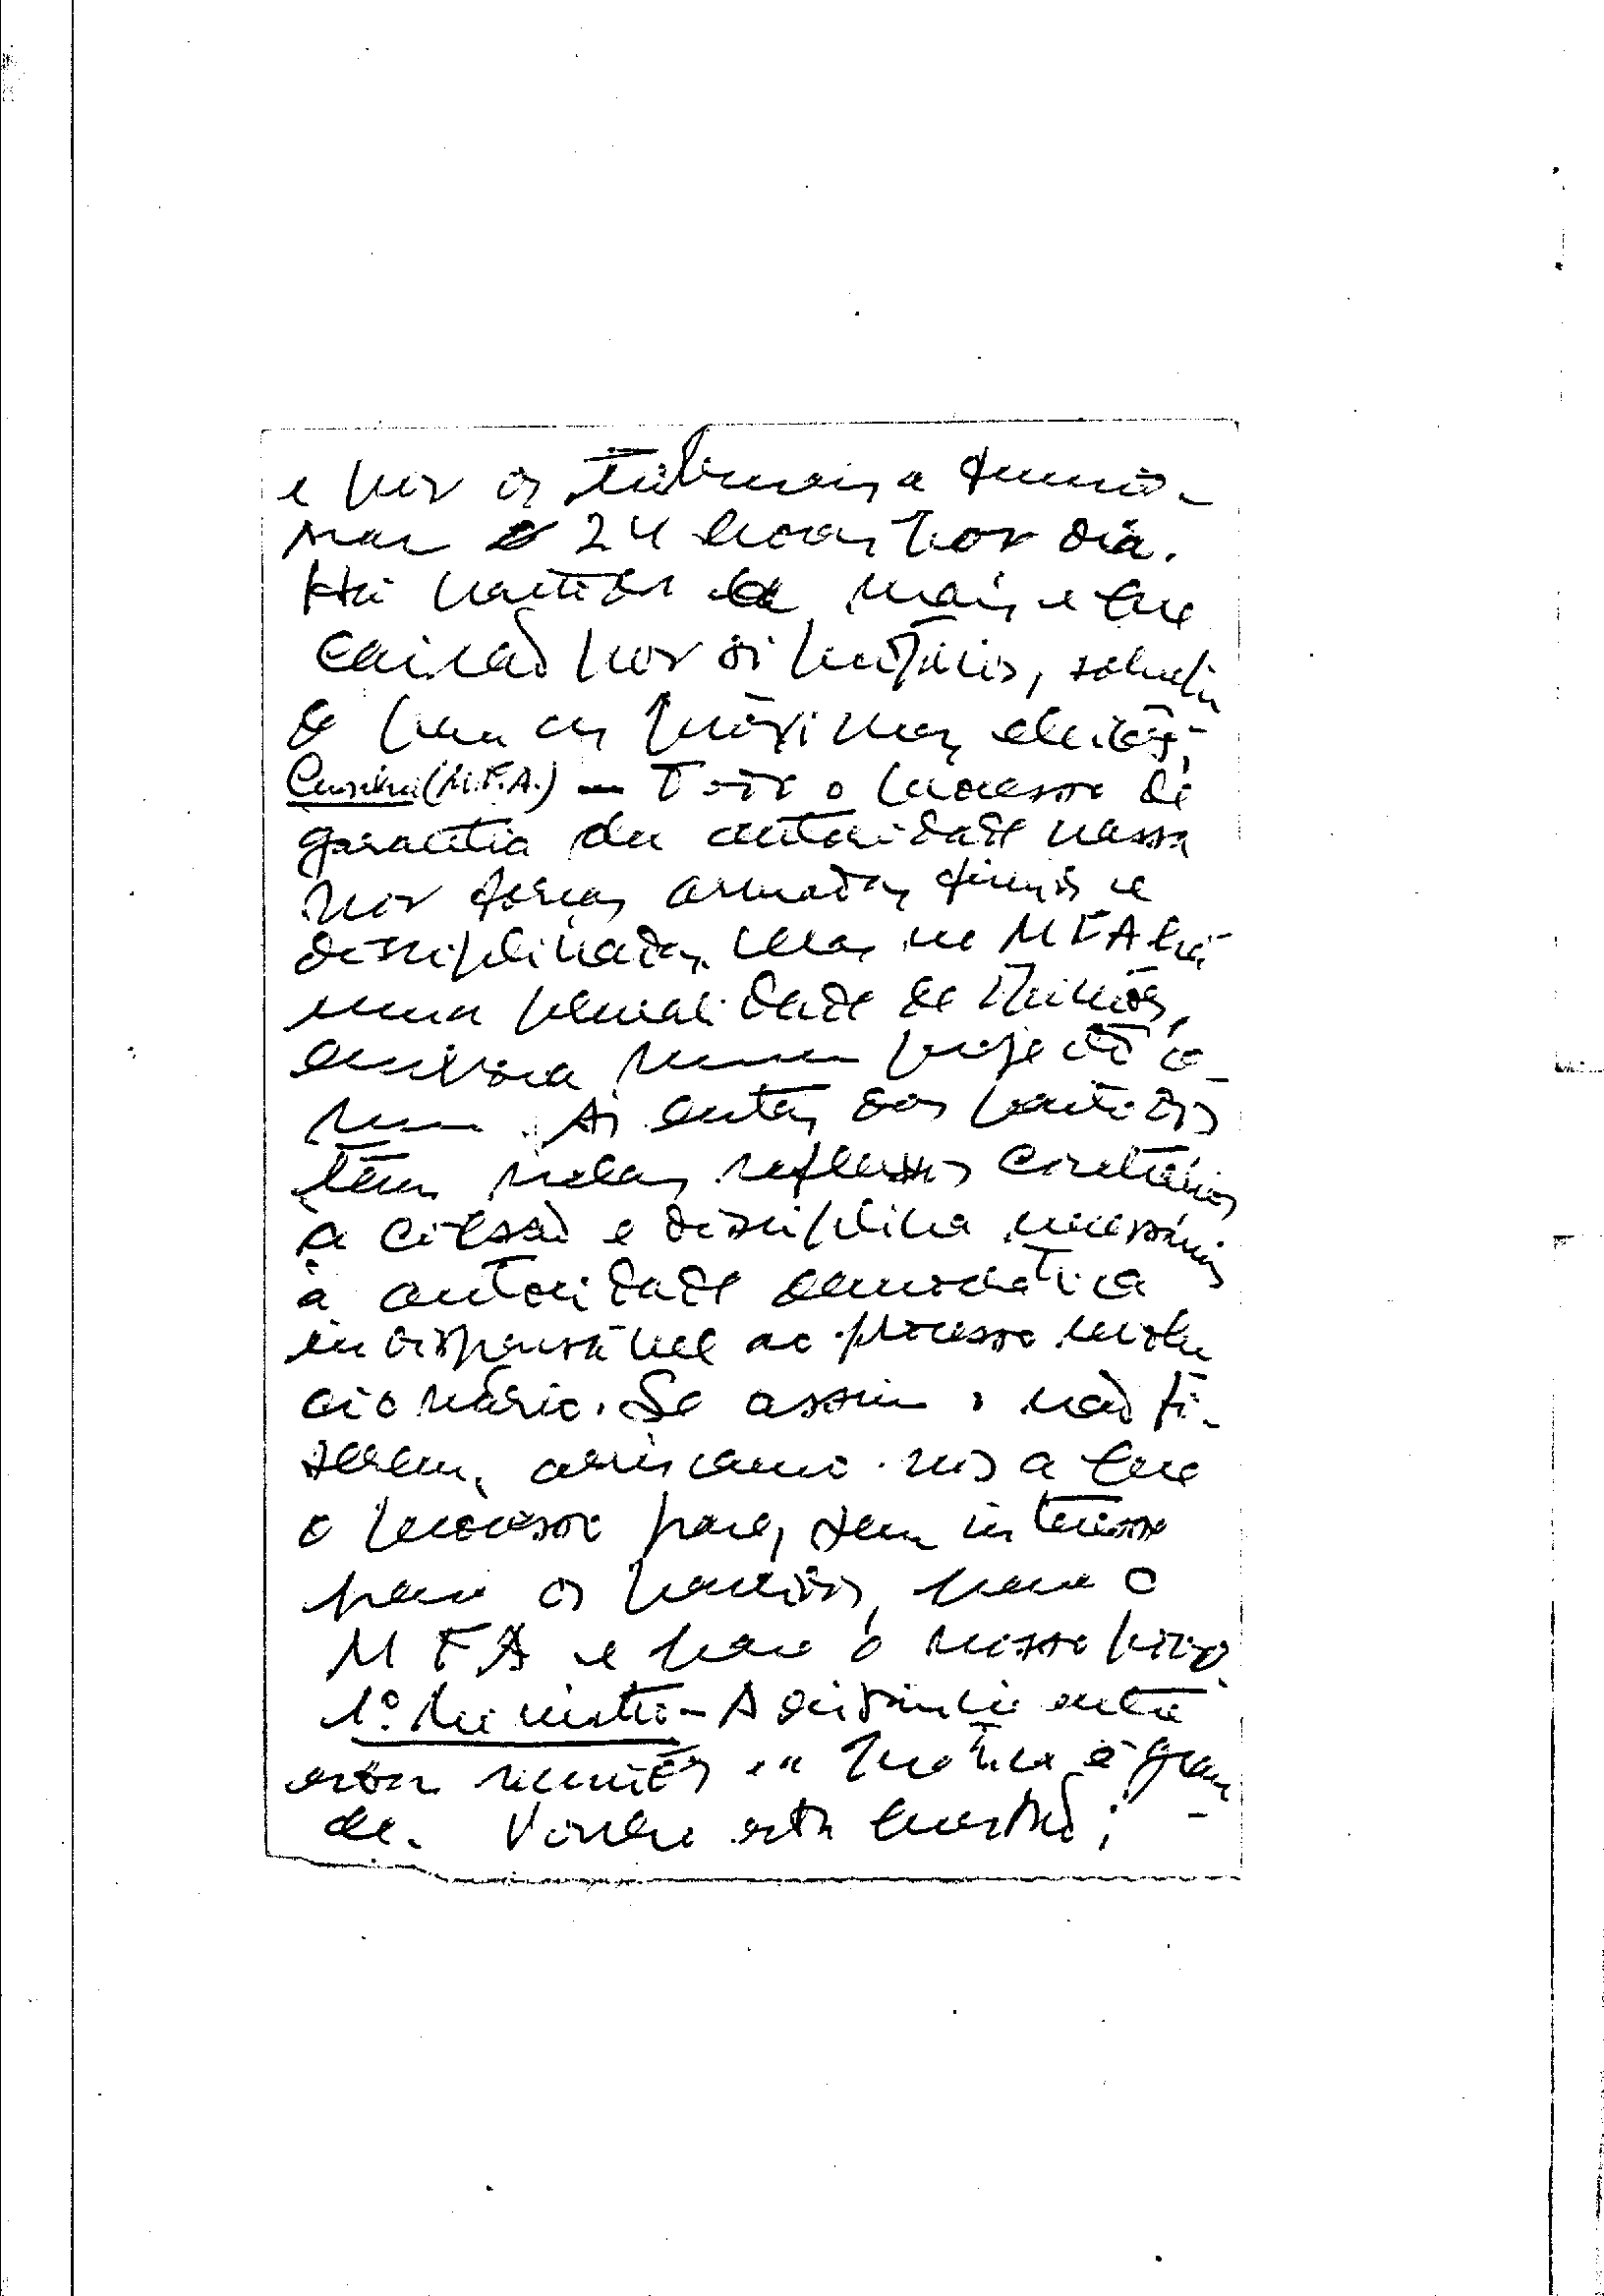 e pôr os tribunais a funcio-
nar 24 horas por dia.
Há partidos a mais e que
cairão por si próprios, sobretu
do para as próximas eleições,
Cunha (M.F.A.) — Todo o processo de
garantia da autoridade passa
por forças armadas firmes e
disciplinadas. Mas no MFA há
uma pluralidade de opiniões,
embora num projecto co-
mum. As lutas dos partidos
têm nelas reflexos contrários
à coesão e disciplina necessárias
à autoridade democrática
indispensável ao processo revolu
cionário. Se assim o não fi-
zerem, arriscamo-nos a que
o processo pare, sem interesse
para os partidos, para o
MFA e para o nosso povo.
1º Ministro - A distância entre
estas reuniões e a prática é gran
de. Ponho esta questão: